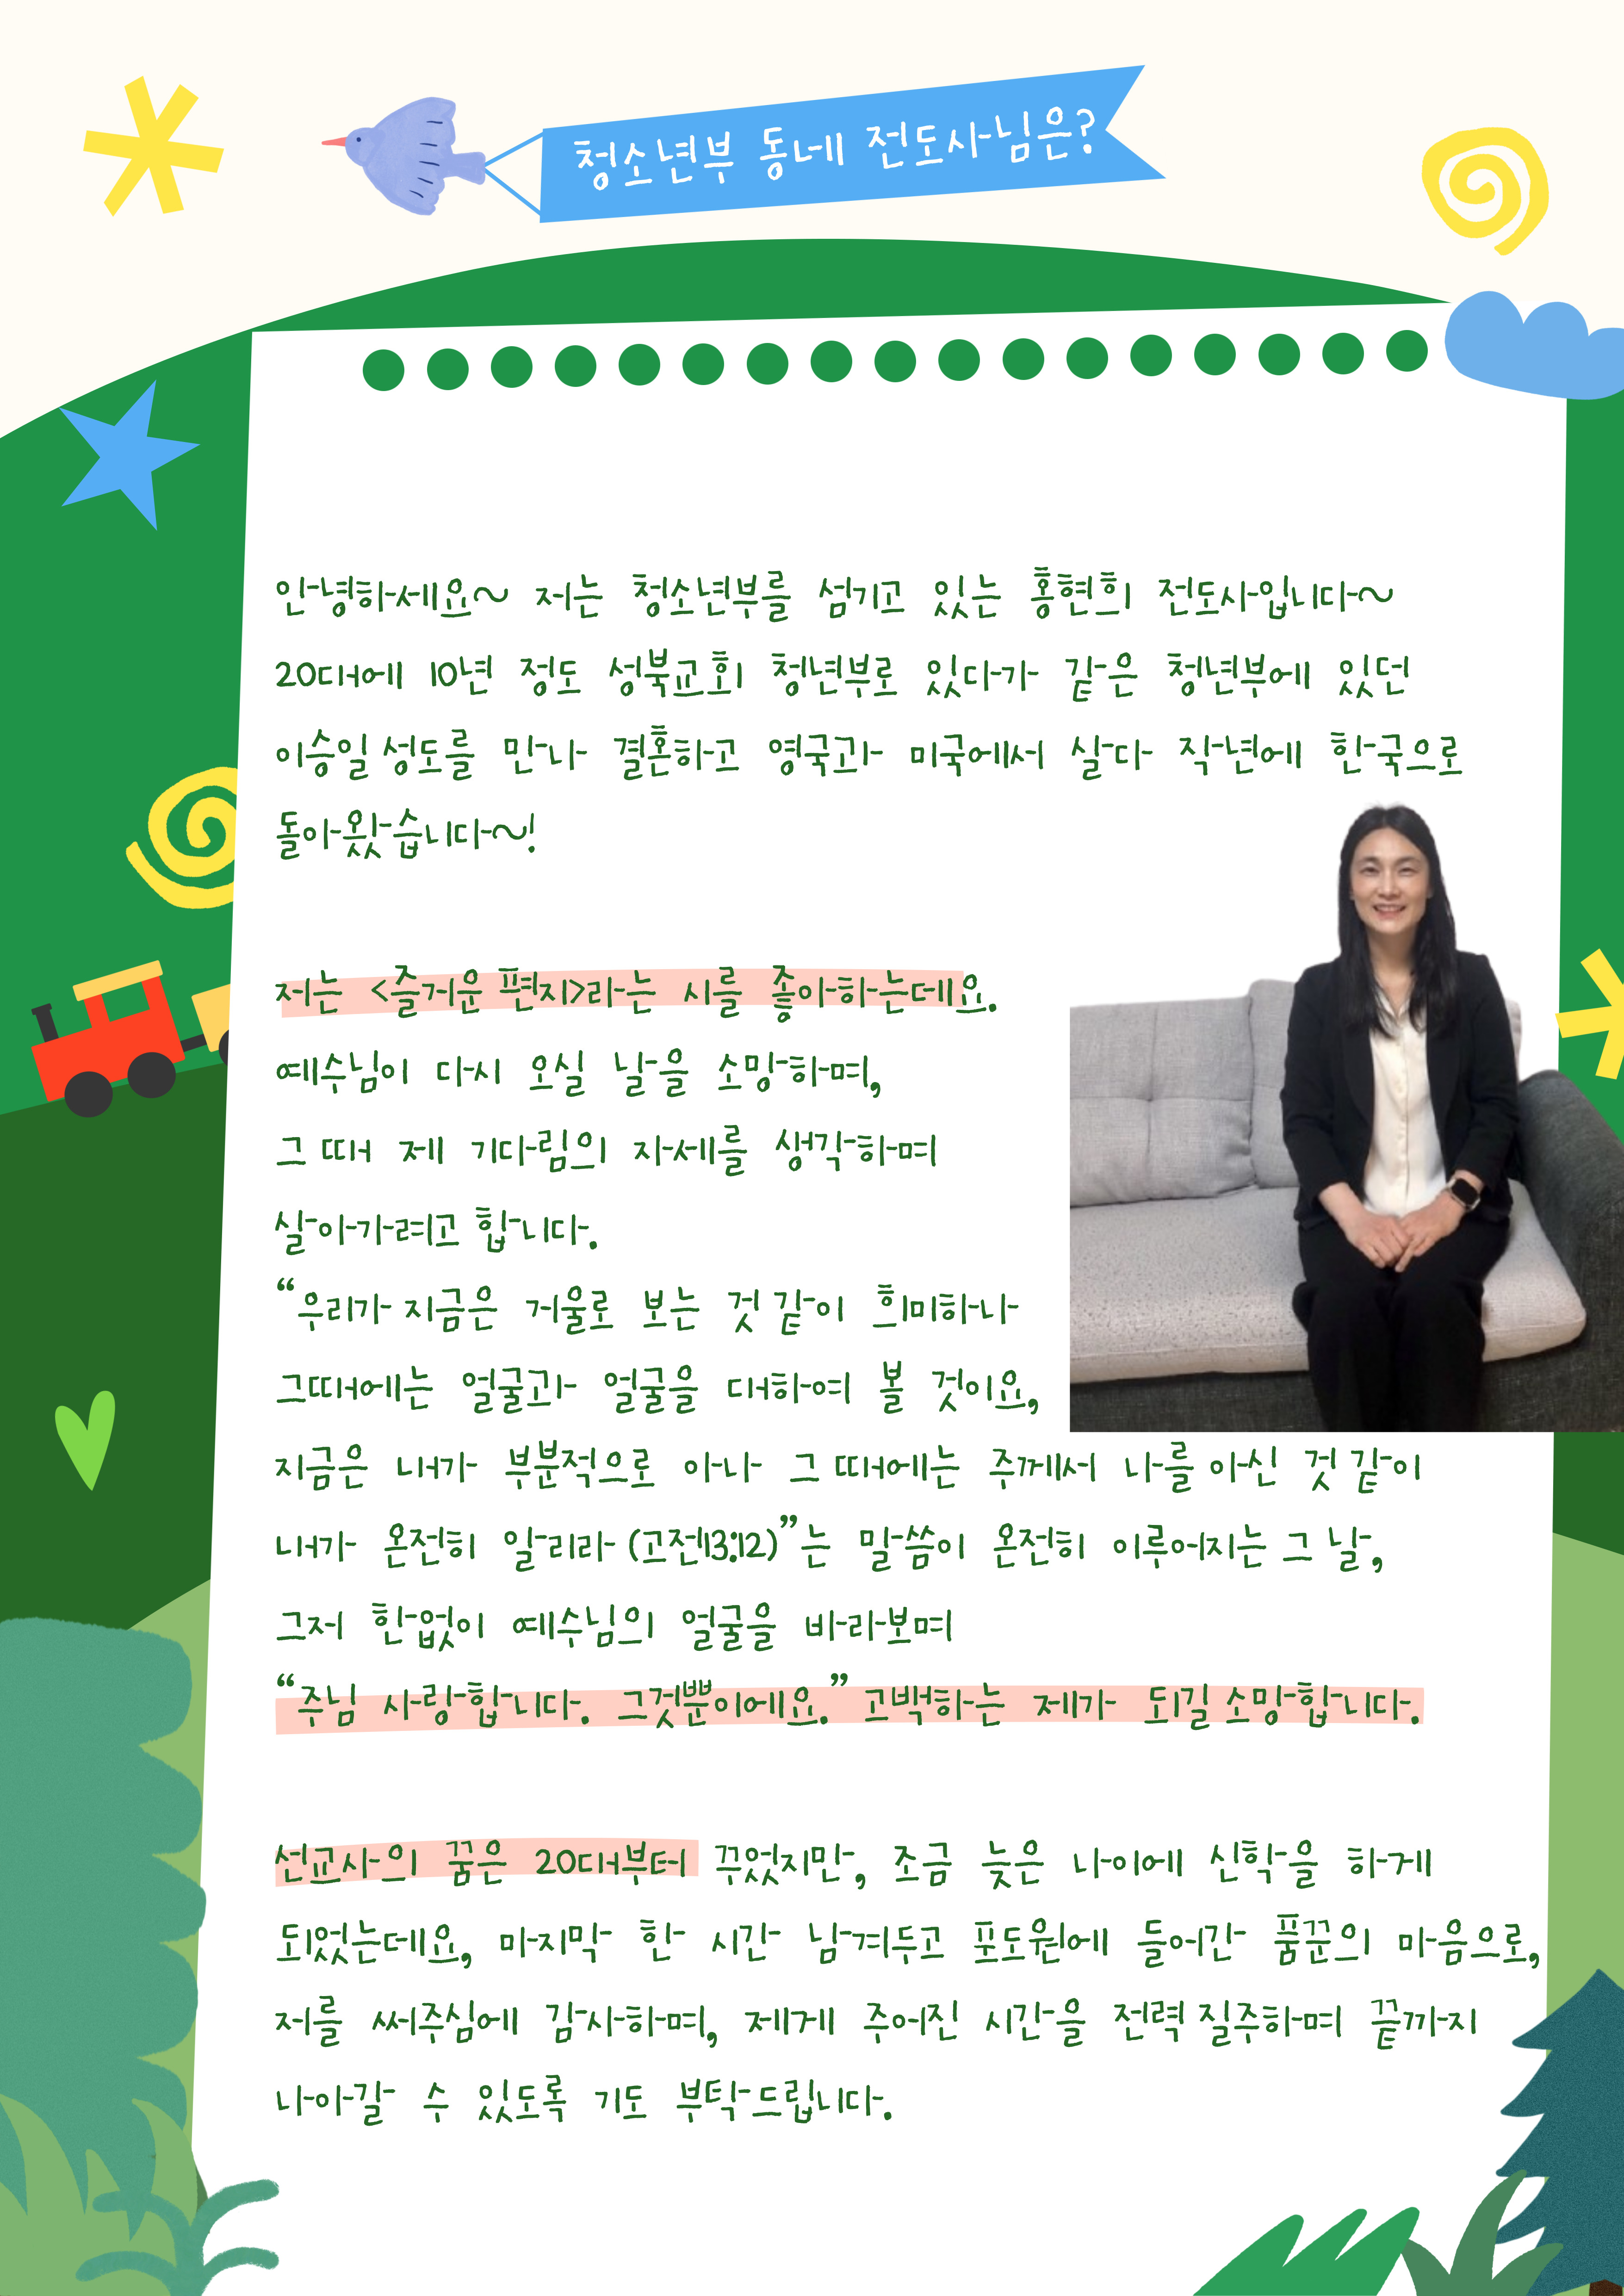 청소년부 동네 전도사님은?
안녕하세요~ 저는 청소년부를 섬기고 있는 홍현희 전도사입니다~
20대에 10년 정도 성북교회 청년부로 있다가 같은 청년부에 있던
이승일 성도를 만나 결혼하고 영국과 미국에서 살다 작년에 한국으로
돌아왔습니다~!
저는 <즐거운 편지>라는 시를 좋아하는데요.
예수님이 다시 오실 날을 소망하며,
그 때 제 기다림의 자세를 생각하며
살아가려고 합니다.
“우리가 지금은 거울로 보는 것 같이 희미하나
그때에는 얼굴과 얼굴을 대하여 볼 것이요,
지금은 내가 부분적으로 아나 그 때에는 주께서 나를 아신 것 같이
내가 온전히 알리라 (고전13:12)”는 말씀이 온전히 이루어지는 그 날,
그저 한없이 예수님의 얼굴을 바라보며
“주님 사랑합니다. 그것뿐이에요.” 고백하는 제가 되길 소망합니다.
선교사의 꿈은 20대부터 꾸었지만, 조금 늦은 나이에 신학을 하게
되었는데요, 마지막 한 시간 남겨두고 포도원에 들어간 품꾼의 마음으로,
저를 써주심에 감사하며, 제게 주어진 시간을 전력 질주하며 끝까지
나아갈 수 있도록 기도 부탁드립니다.